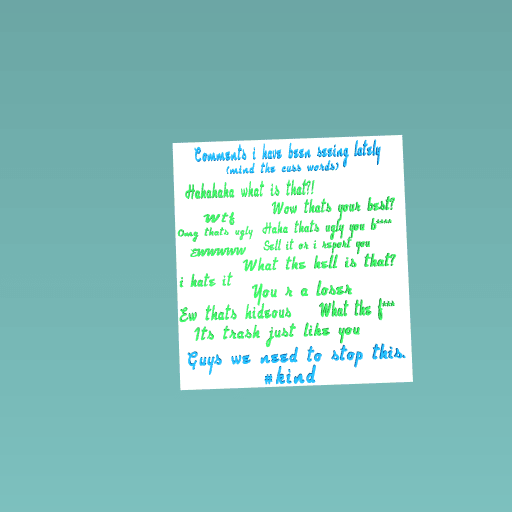 Comments i have been seeing lately
(mind the cuss words)
Hahahaha what is that?!
Wtf
Wow thats your best?
Omg thats ugly
Haha thats ugly you b****
Ewwwww
Sell it or i report you
What the hell is that?
i hate it
You r a loser
Ew thats hideous
What the f***
Its trash just like you
Guys we need to stop this.
#kind